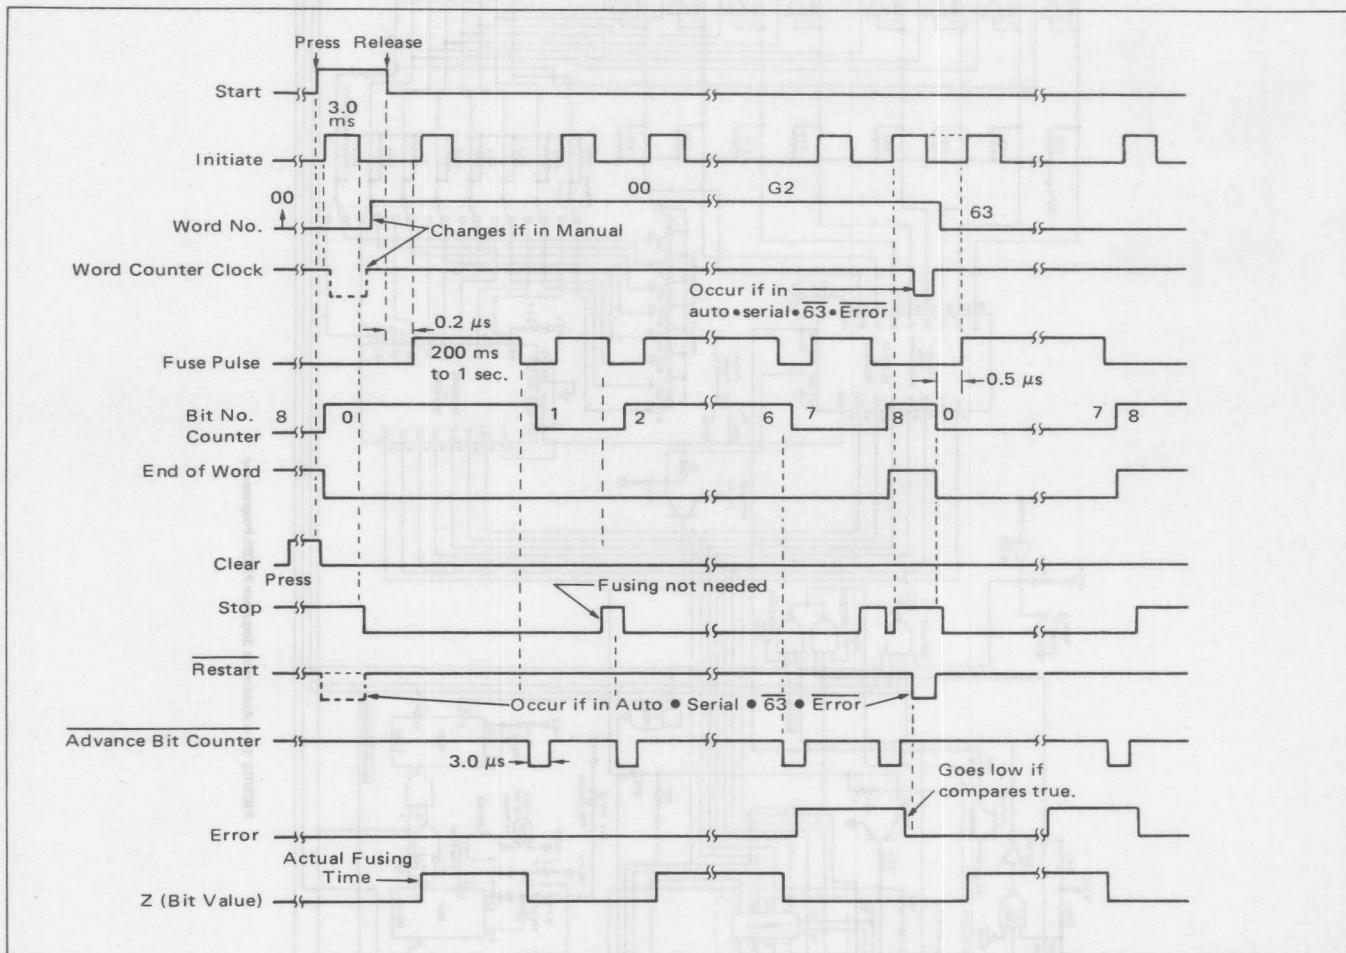 Press Release
Start
3.0
ms
Initiate
00 00 G2
Word No. 63
Changes if in Manual
Word Counter Clock
Occur if in
auto•serial•6̅3̅•E̅r̅r̅o̅r̅
0.2 μs
Fuse Pulse
200 ms
to 1 sec.
0.5 μs
Bit No.
Counter
8 0 1 2 6 7 8 0 7 8
End of Word
Clear
Press
Fusing not needed
Stop
R̅e̅s̅t̅a̅r̅t̅
Occur if in Auto ● Serial ● 6̅3̅ ● E̅r̅r̅o̅r̅
A̅d̅v̅a̅n̅c̅e̅ ̅B̅i̅t̅ ̅C̅o̅u̅n̅t̅e̅r̅
3.0 μs
Goes low if
compares true.
Error
Actual Fusing
Time
Z (Bit Value)